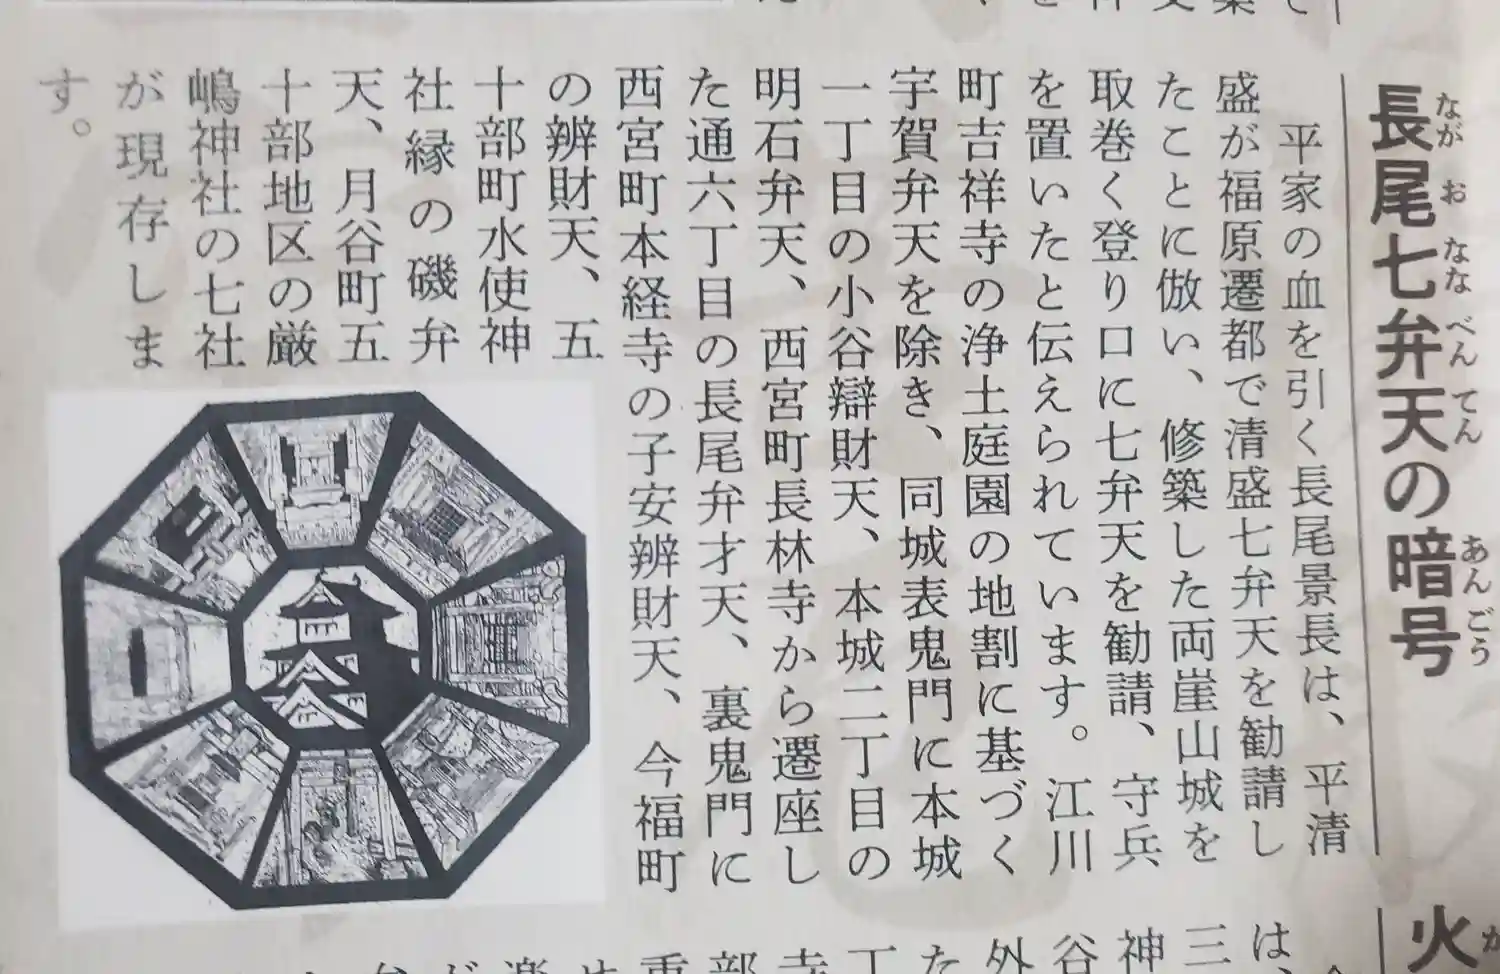 長尾七弁天の暗号
なが お なな べん てん あん ごう
平家の血を引く長尾景長は、平清
盛が福原遷都で清盛七弁天を勧請し
たことに倣い、修築した両崖山城を
取巻く登り口に七弁天を勧請、守兵
を置いたと伝えられています。江川
町吉祥寺の浄土庭園の地割に基づく
宇賀弁天を除き、同城表鬼門に本城
一丁目の小谷辯財天、本城二丁目の
明石弁天、西宮町長林寺から遷座し
た通六丁目の長尾弁才天、裏鬼門に
西宮町本経寺の子安辨財天、今福町
の辨財天、五
十部町水使神
社縁の磯弁
天、月谷町五
十部地区の厳
嶋神社の七社
が現存しま
す。
火
は、
三
神
谷
外
た
丁
寺
部
重